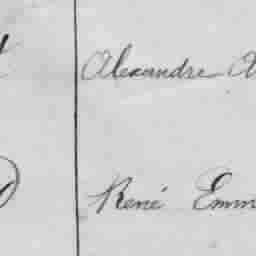 Alexandre
René Emm